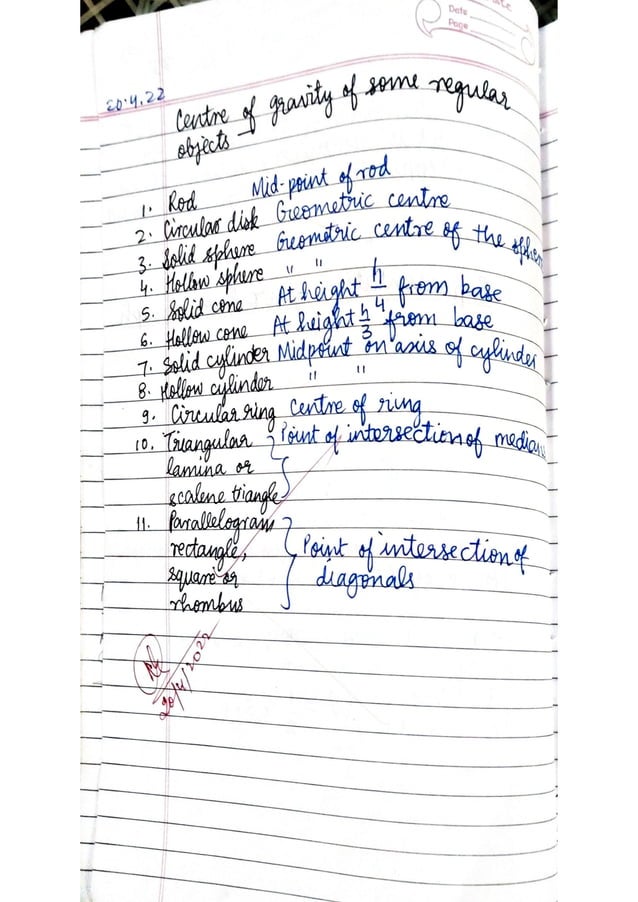 Date
Page
20.4.22
Centre of gravity of some regular
objects -
1. Rod Mid-point of rod
2. Circular disk Geometric centre
3. Solid sphere Geometric centre of the sphere
4. Hollow sphere " "
5. Solid cone At height h/4 from base
6. Hollow cone At height h/3 from base
7. Solid cylinder Midpoint on axis of cylinder
8. Hollow cylinder " "
9. Circular ring Centre of ring
10. Triangular Point of intersection of medians
lamina or
scalene triangle
11. Parallelogram
rectangle, Point of intersection of
square or diagonals
rhombus
20/4/2022